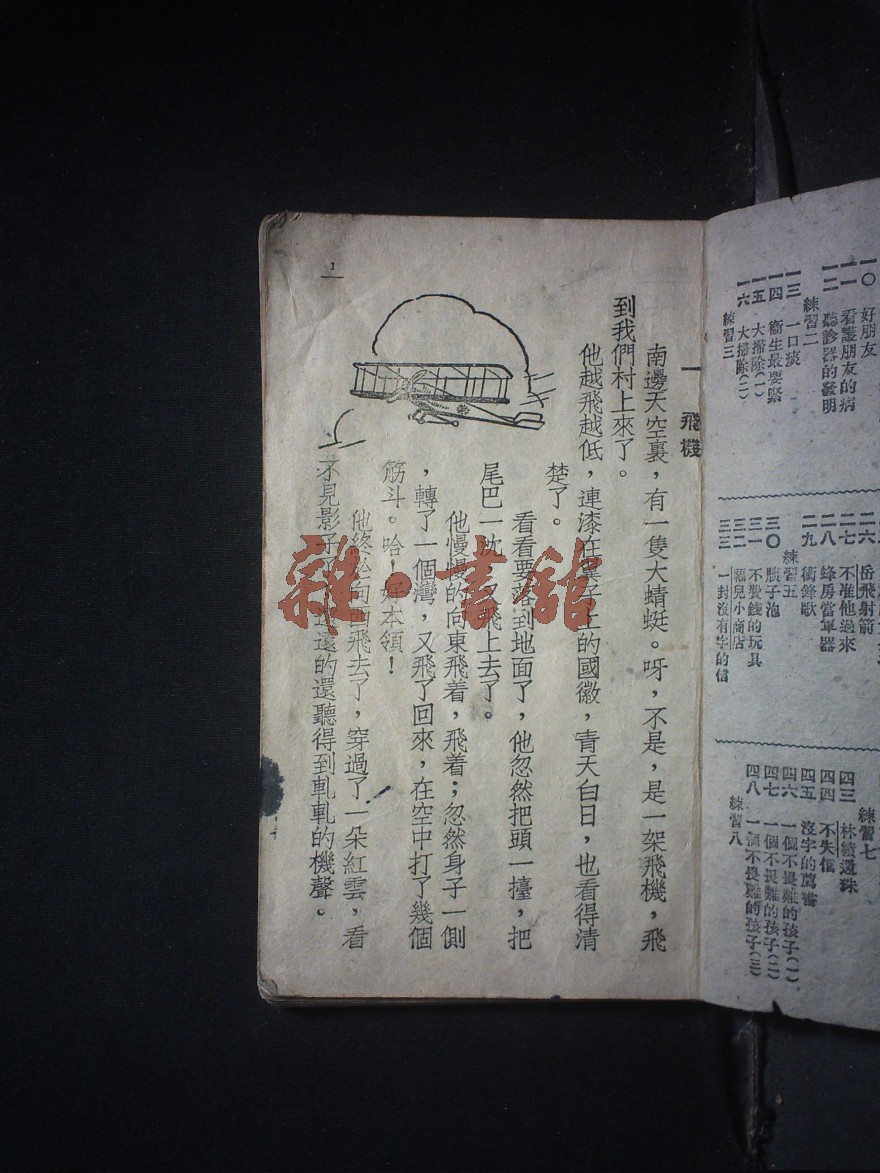 一〇 好朋友
一一 看護朋友的病
一二 聽診器的發明
練習二
一三 一口痰
一四 衞生最要緊
一五 大掃除(一)
一六 大掃除(二)
練習三
二六 岳飛射箭
二七 不准他過來
二八 蜂房當軍器
二九 衝鋒歌
練習五
三〇 胰子泡
三一 不要錢的玩具
三二 福兒小商店
三三 一封沒有字的信
練習七
四三 林績還珠
四四 不失信
四五 沒字的薦書
四六 一個不畏難的孩子(一)
四七 一個不畏難的孩子(二)
四八 一個不畏難的孩子(三)
練習八
一 飛機
南邊天空裏,有一隻大蜻蜓。呀,不是,是一架飛機,飛
到我們村上來了。
他越飛越低,連漆在翼子上的國徽,青天白日,也看得清
楚了。
看看要落到地面了,他忽然把頭一擡,把
尾巴一沈,又飛上去了。
他慢慢的向東飛着,飛着;忽然身子一側
,轉了一個灣,又飛了回來,在空中打了幾個
筋斗。哈!好本領!
他終於向西飛去了,穿過了一朵紅雲,看
不見影子了,遠遠的還聽得到軋軋的機聲。
1
雜·書館